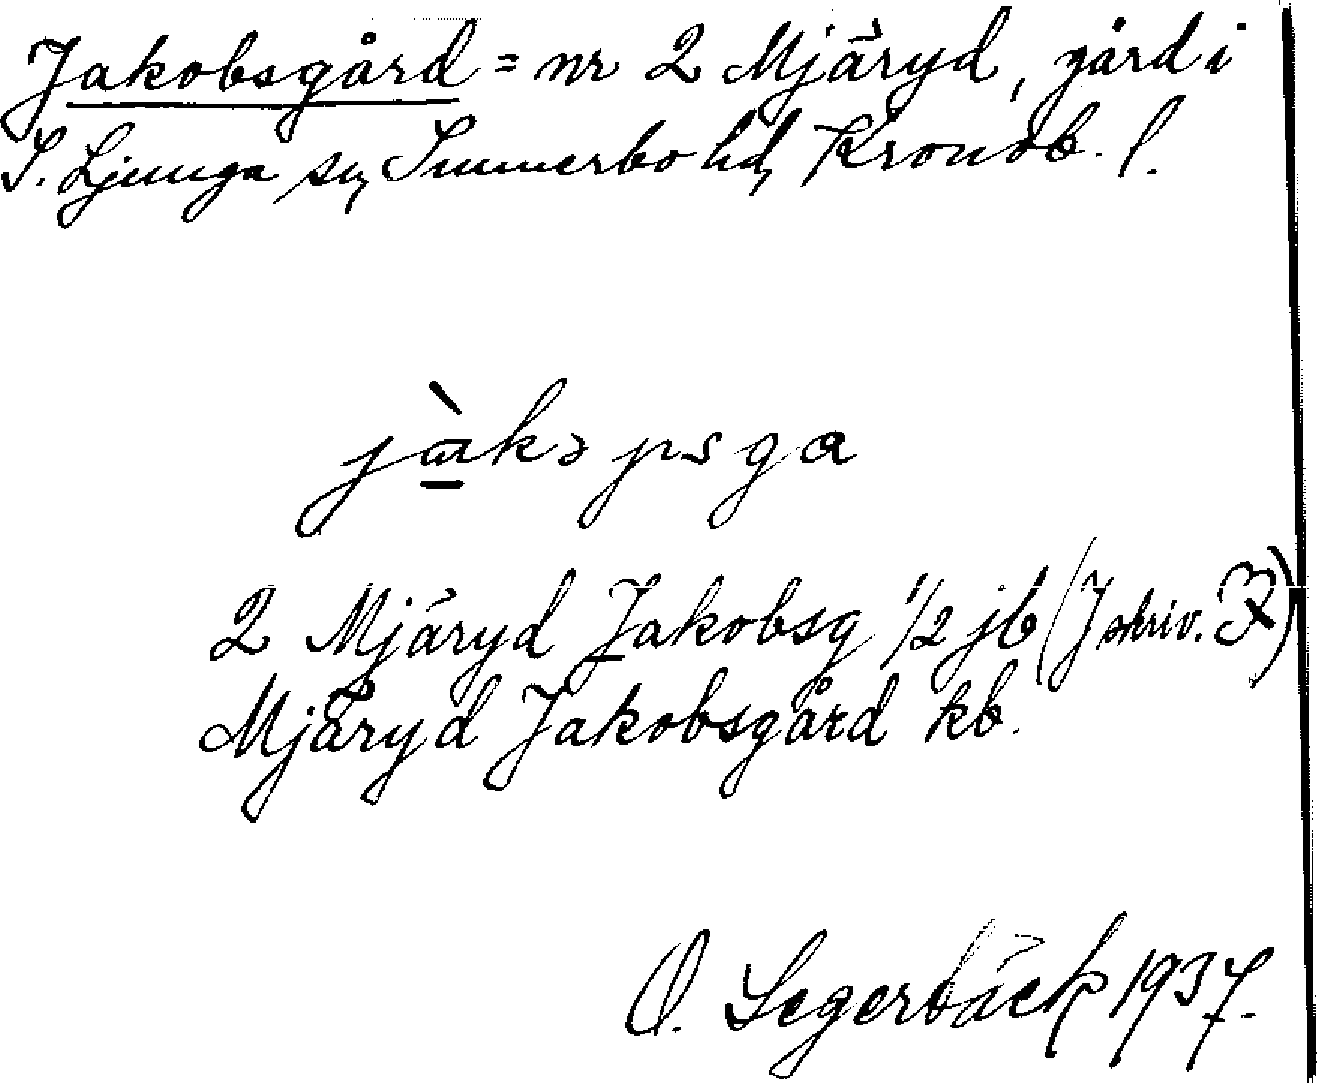 Jakobsgård = nr 2 Mjäryd, gård i
S. Ljunga sn, Sunnerbo hd, Kronob. l.
jὰkəpsga
2 Mjäryd Jakobsg 1/2 jb (J skriv. )
Mjäryd Jakobsgård kb.
O. Segerbäck 1937.